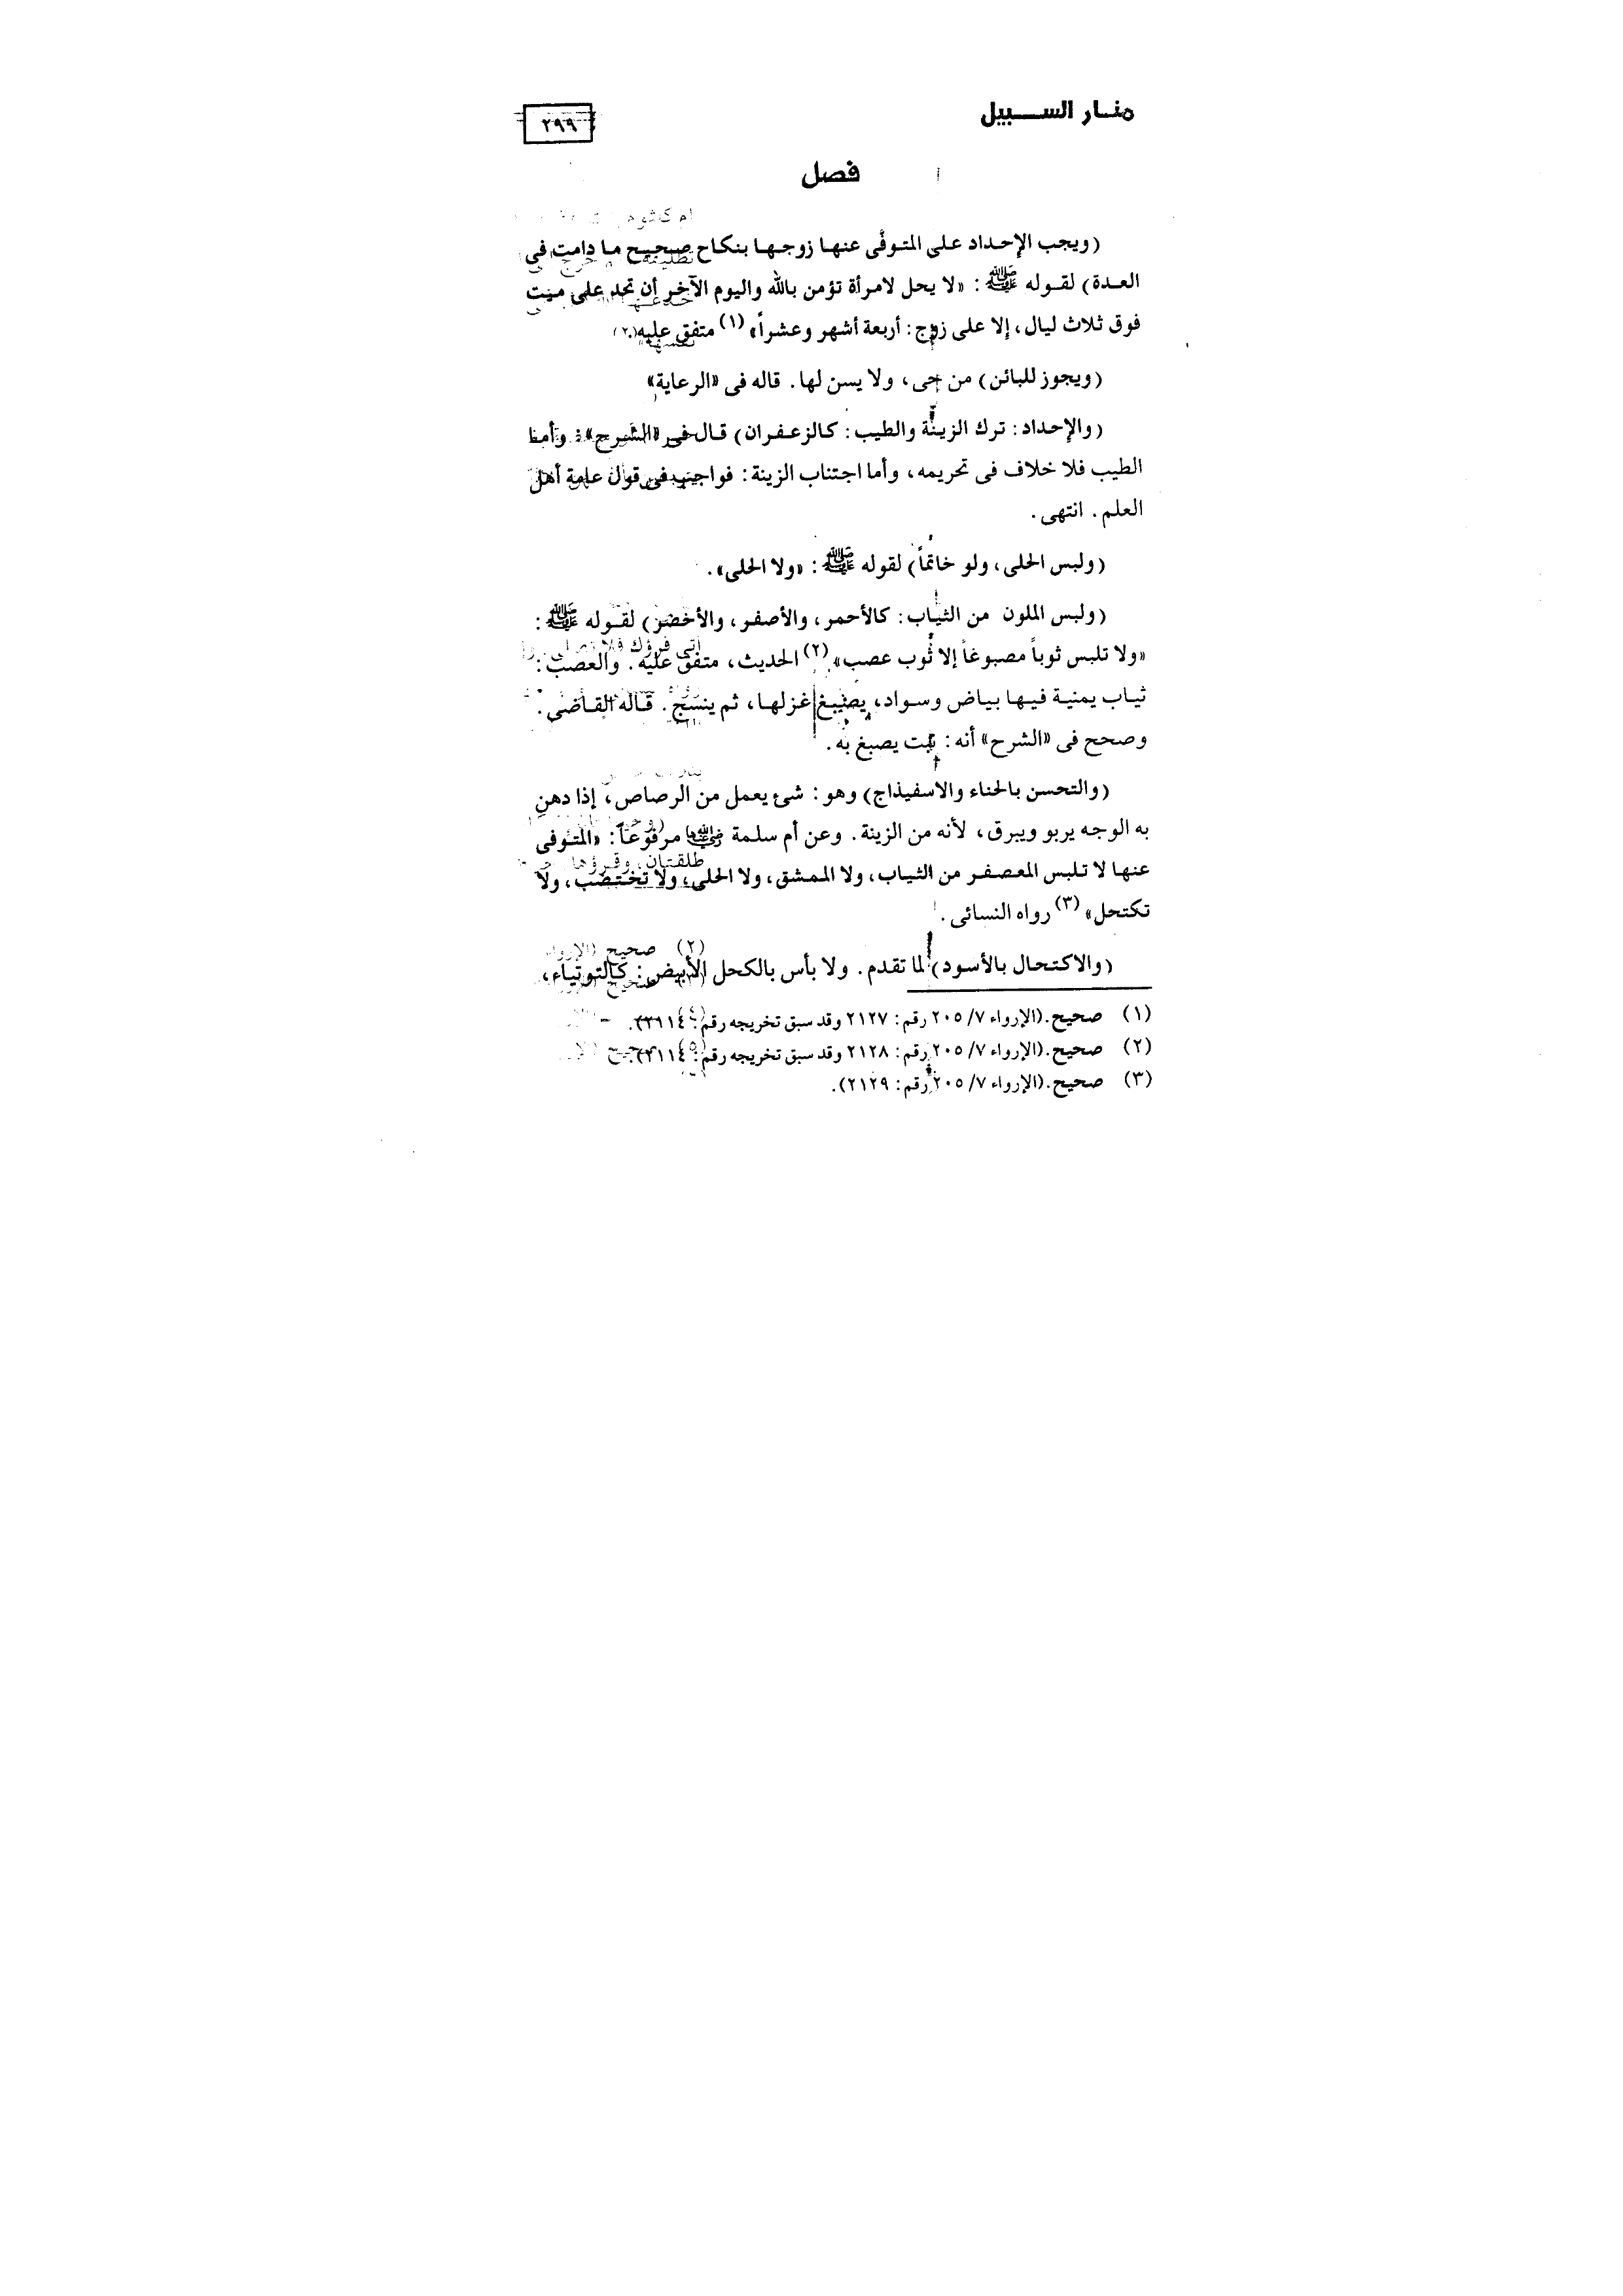 منار السبيل
٢٩٩
فصل
(ويجب الإحداد على المتوفَّى عنها زوجها بنكاح صحيح ما دامت فى
العدة) لقوله ﷺ: «لا يحل لامرأة تؤمن بالله واليوم الآخر أن تحد على ميت
فوق ثلاث ليال، إلا على زوج: أربعة أشهر وعشراً» (١) متفق عليه
(ويجوز للبائن) من حى، ولا يسن لها. قاله فى «الرعاية»
(والإحداد: ترك الزينة والطيب: كالزعفران) قال فى «الشرح»: وأما
الطيب فلا خلاف فى تحريمه، وأما اجتناب الزينة: فواجب فى قول عامة أهل
العلم. انتهى.
(ولبس الحلى، ولو خاتماً) لقوله ﷺ: «ولا الحلى».
(ولبس الملون من الثياب: كالأحمر، والأصفر، والأخضر) لقوله ﷺ:
«ولا تلبس ثوباً مصبوغاً إلا ثوب عصب» (٢) الحديث، متفق عليه. والعصب:
ثياب يمنية فيها بياض وسواد، يصبغ غزلها، ثم ينسج. قاله القاضى.
وصحح فى «الشرح» أنه: نبت يصبغ به.
(والتحسن بالحناء والاسفيذاج) وهو: شئ يعمل من الرصاص، إذا دهن
به الوجه يربو ويبرق، لأنه من الزينة. وعن أم سلمة رضي الله عنها مرفوعاً: «المتوفى
عنها لا تلبس المعصفر من الثياب، ولا الممشق، ولا الحلى، ولا تختضب، ولا
تكتحل» (٣) رواه النسائى.
(والاكتحال بالأسود) لما تقدم. ولا بأس بالكحل الأبيض: كالتوتياء،
(١) صحيح. (الإرواء ٢٠٥/٧ رقم: ٢١٢٧ وقد سبق تخريجه رقم:
(٢) صحيح. (الإرواء ٢٠٥/٧ رقم: ٢١٢٨ وقد سبق تخريجه رقم:
(٣) صحيح. (الإرواء ٢٠٥/٧ رقم: ٢١٢٩).